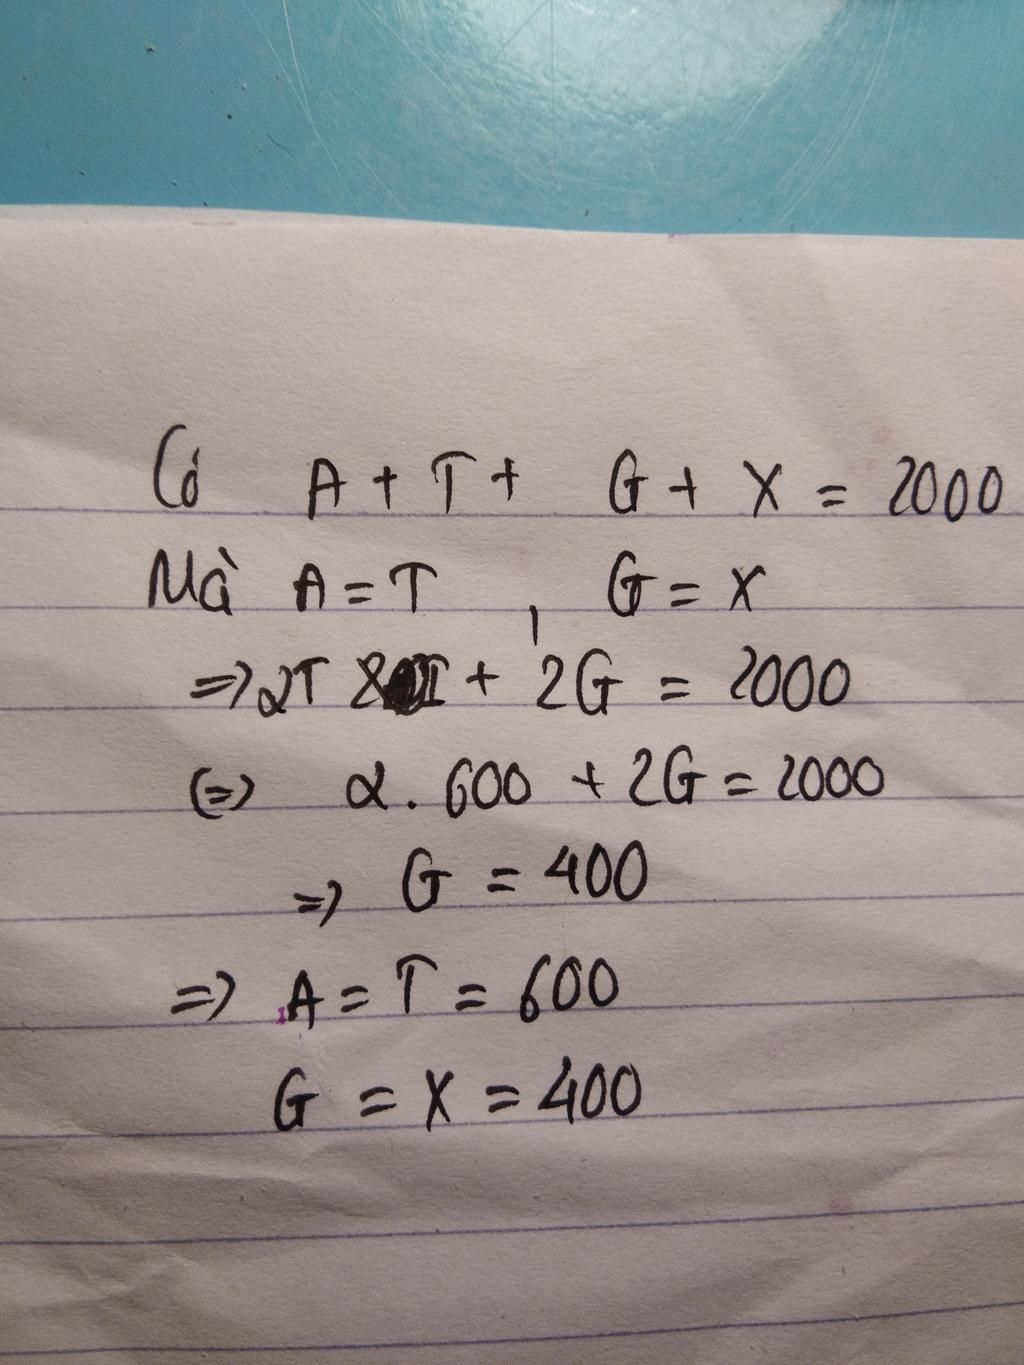 Có A + T + G + X = 2000
Mà A = T , G = X
=> 2T + 2G = 2000
(=) 2 . 600 + 2G = 2000
=> G = 400
=> A = T = 600
G = X = 400